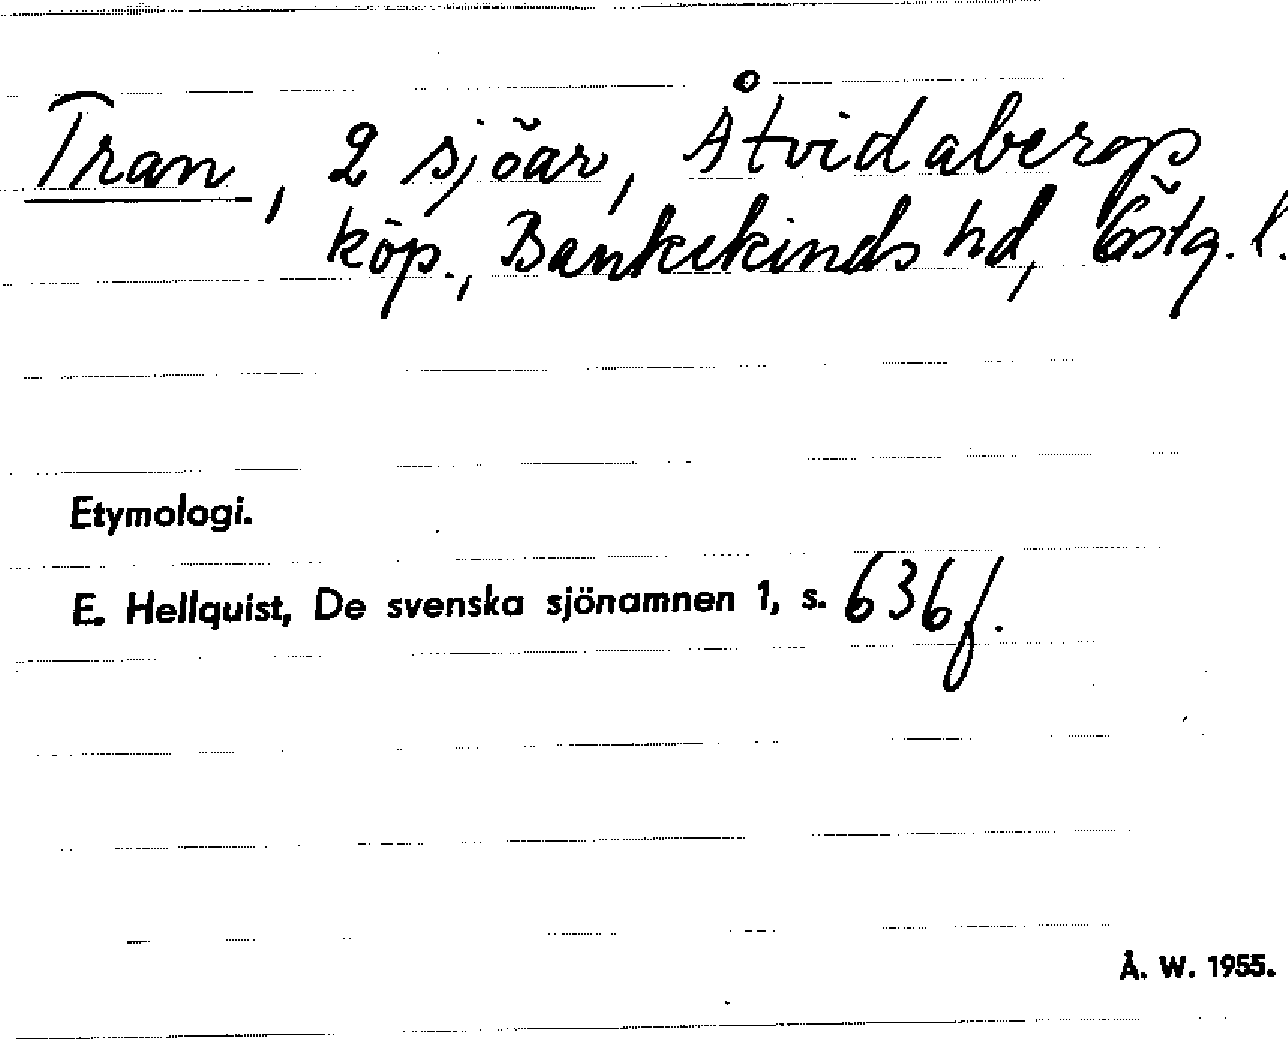 Tran, 2 sjöar, Åtvidabergs
köp., Bankekinds hd, Östg. l.
Etymologi.
E. Hellquist, De svenska sjönamnen 1, s. 636f.
Å. W. 1955.